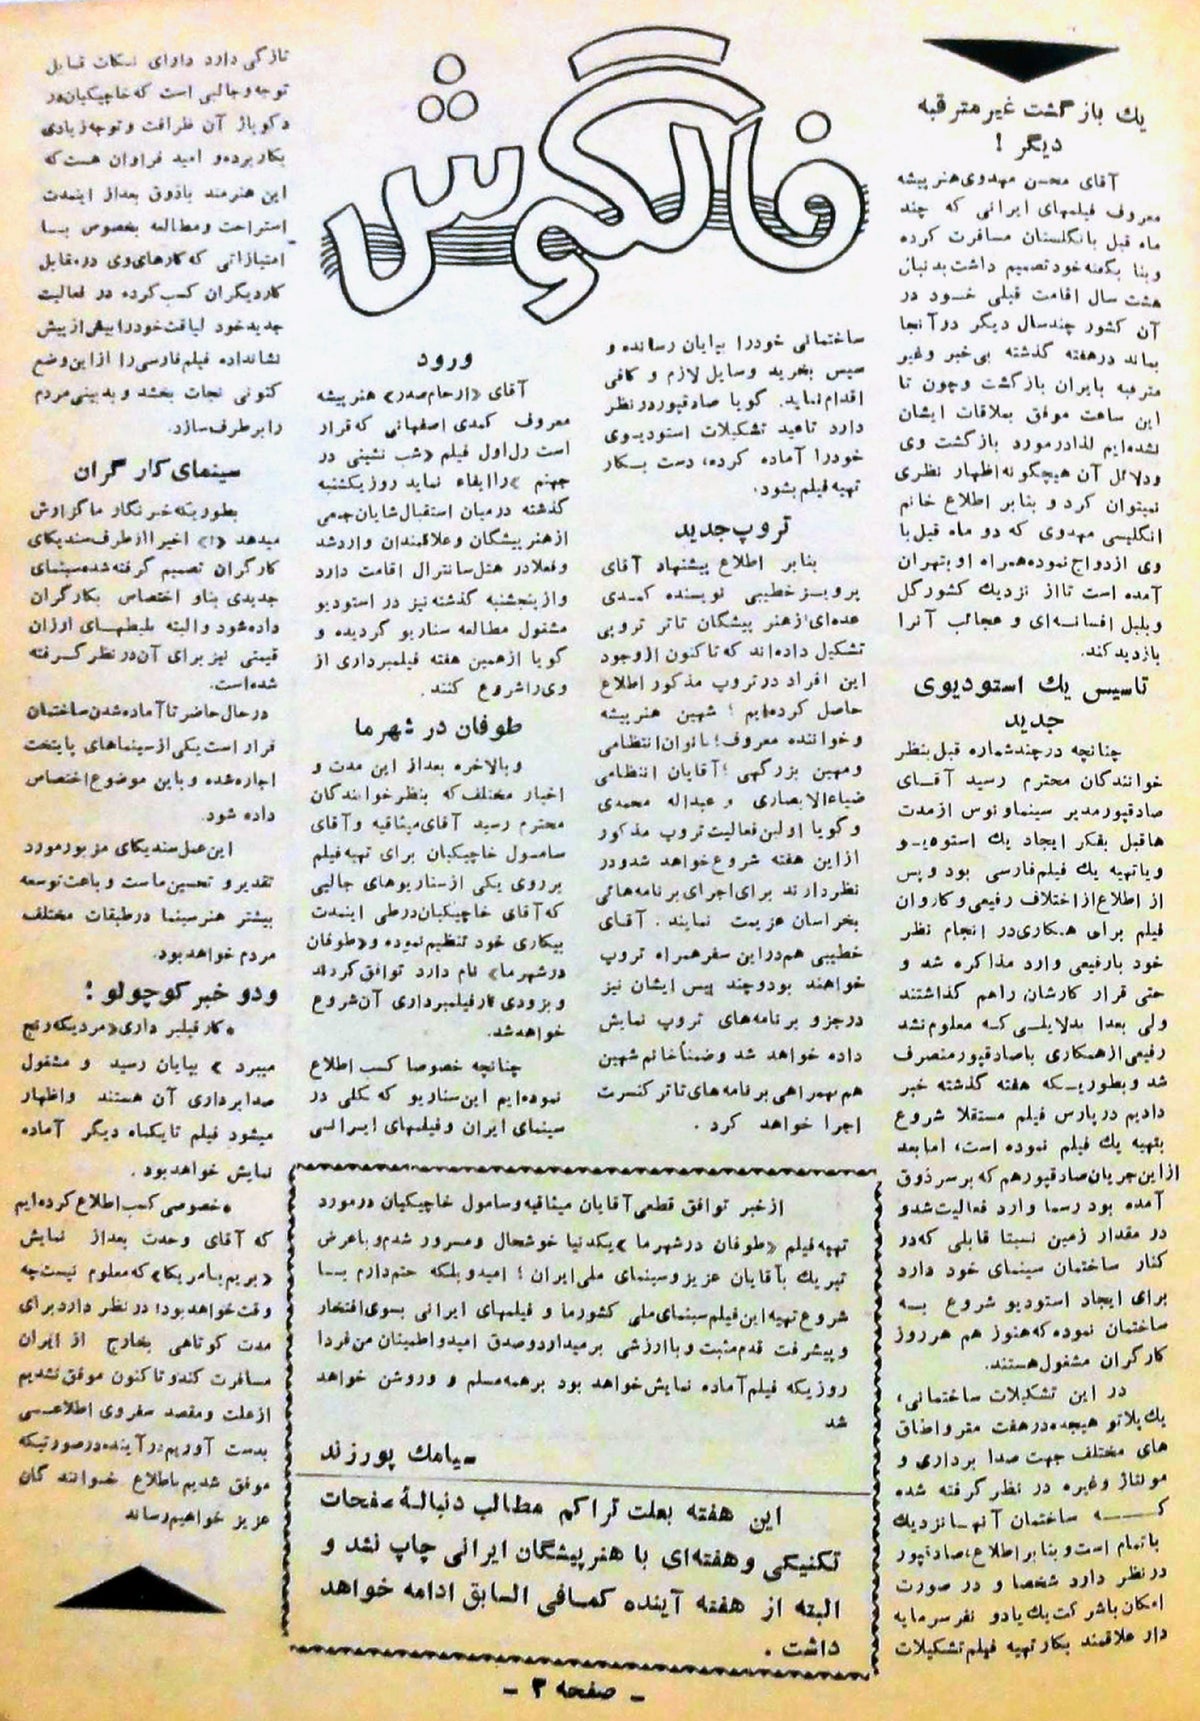 فالگوش
يك بازگشت غير مترقبه
ديگر !
آقای محسن مهدوی هنرپيشه
معروف فيلمهای ايرانی كه چند
ماه قبل بانگلستان مسافرت كرده
وبنا بگفته خودتصميم داشت بدنبال
هشت سال اقامت قبلی خود در
آن كشور چندسال ديگر درآنجا
بماند درهفته گذشته بی‌خبر وغير
مترقبه بايران بازگشت وچون تا
اين ساعت موفق بملاقات ايشان
نشده‌ايم لذادرمورد بازگشت وی
ودلائل آن هيچگونه اظهار نظری
نميتوان كرد و بنابر اطلاع خانم
انگليسی مهدوی كه دو ماه قبل با
وی ازدواج نموده همراه او بتهران
آمده است تااز نزديك كشورگل
وبلبل افسانه‌ای و عجائب آنرا
بازديدكند.
تاسيس يك استوديوی
جديد
چنانچه درچندشماره قبل بنظر
خوانندگان محترم رسيد آقـای
صادقپورمدير سينماونوس ازمدت
هاقبل بفكر ايجاد يك استوديـو
وياتهيه يك فيلم‌فارسی بود وپس
از اطلاع ازاختلاف رفيعی وكاروان
فيلم برای همكاری‌در انجام نظر
خود بارفيعی وارد مذاكره شد و
حتی قرار كارشان راهم گذاشتند
ولی بعدا بدلايلـی كـه معلوم نشد
رفيعی ازهمكاری باصادقپورمنصرف
شد وبطوريـكه هفته گذشته خبر
داديم درپارس فيلم مستقلا شروع
بتهيه يك فيلم نموده است، امابعد
ازاين جريان صادقپورهم كه برسرذوق
آمده بود رسما وارد فعاليت شدو
در مقدار زمين نسبتا قابلی كه‌در
كنار ساختمان سينمای خود دارد
برای ايجاد استوديو شروع بـه
ساختمان نموده كه هنوز هم هرروز
كارگران مشغول هستند.
در اين تشكيلات ساختمانی،
يك پلاتو هيجده درهفت متر واطاق
های مختلف جهت صدا برداری و
مونتاژ وغيره در نظر گرفته شده
كـــه ساختمان آنهـا نزديك
باتمام است و بنا بر اطلاع،صادقپور
درنظر دارد شخصا و در صورت
امكان باشركت يك يادو نفر سرمايه
دار علاقمند بكار تهيه فيلم تشكيلات
ساختمانی خودرا بپايان رسانده و
سپس بخريد وسايل لازم و كافی
اقدام نمايد. گويا صادقپوردرنظر
دارد تاعيد تشكيلات استوديـوی
خودرا آماده كرده، دست بـكار
تهيه فيلم بشود.
تروپ جديد
بنابر اطلاع پيشنهاد آقای
پرويـز خطيبی نويسنده كمـدی
عده‌ای ازهنر پيشگان تاتر تروپی
تشكيل داده‌اند كه تاكنون از وجود
اين افراد درتروپ مذكور اطلاع
حاصل كرده‌ايم ؛ شهين هنرپيشه
وخواننده معروف؛ بانوان انتظامی
ومهين بزرگهی ؛ آقايان انتظامی
ضياءالابصاری و عبداله محمدی
وگويا اولين فعاليت تروپ مذكور
ازاين هفته شروع خواهد شدودر
نظردارند برای اجرای برنامه‌هائی
بخراسان عزيمت نمايند . آقـای
خطيبی هم‌دراين سفرهمراه تروپ
خواهند بودوچند پيس ايشان نيز
درجزو برنامه‌های تروپ نمايش
داده خواهد شد وضمناً خانم شهين
هم بهمراهی برنامه‌های تاتر كنسرت
اجرا خواهد كرد .
ورود
آقای «ارحام‌صدر» هنرپيشه
معروف كمدی اصفهانی كه قرار
است رل‌اول فيلم «شب نشينی در
جهنم » راايفاء نمايد روز يكشنبه
گذشته درميان استقبال شايان جمعی
ازهنرپيشگان وعلاقمندان واردشد
وفعلادر هتل‌سانترال اقامت دارد
وازپنجشنبه گذشته نيز در استوديو
مشغول مطالعه سناريو گرديده و
گويا ازهمين هفته فيلمبرداری از
وی راشروع كنند .
طوفان در شهر ما
وبالاخره بعداز اين مدت و
اخبار مختلف كه بنظرخوانندگان
محترم رسيد آقای ميثاقيه وآقای
سامـول خاچيكيان برای تهيه فيلم
برروی يكی ازسناريوهای جالبی
كه آقای خاچيكيان‌درطی اينمدت
بيكاری خود تنظيم نموده و«طوفان
درشهر ما» نام دارد توافق كردند
وبزودی كارفيلمبرداری آن شروع
خواهدشد.
چنانچه خصوصا كسب اطلاع
نموده‌ايم اين سناريو كه كلی در
سينمای ايران وفيلمهای ايرانی
تازگی دارد دارای نكات قـابل
توجه وجالبی است كه خاچيكيان‌در
دكوپاژ آن ظرافت وتوجه زيادی
بكار برده و اميد فراوان هست كه
اين هنرمند باذوق بعداز اينمدت
استراحت ومطالعه بخصوص بـا
امتيازاتی كه كارهای وی درمقابل
كارديگران كسب كرده در فعاليت
جديدخود لياقت خودرا بيش از پيش
نشانداده فيلم فارسی را ازاين وضع
كنونی نجات بخشد و بدبينی مردم
را برطرف سازد.
سينمای كار گران
بطوريكه خبر نگار ما گزارش
ميدهد «ا» اخيرا ازطرف سنديكای
كارگران تصميم گرفته شده سينمای
جديدی بنا و اختصاص بكارگران
داده شود و البته بليطهـای ارزان
قيمتی نيز برای آن درنظر گـرفته
شده است.
درحال حاضر تا آماده شدن ساختمان
قرار است يكی ازسينماهای پايتخت
اجاره شده و باين موضوع اختصاص
داده شود.
اين عمل سنديكای مزبورمورد
تقدير و تحسين ماست و باعث توسعه
بيشتر هنرسينما درطبقات مختلف
مردم خواهد بود.
ودو خبر كوچولو ؛
•كار فيلمبرداری «مرديكه رنج
ميبرد » بپايان رسيد و مشغول
صدابرداری آن هستند واظهار
ميشود فيلم تايكماه ديگر آماده
نمايش خواهد بود .
•خصوصی كسب اطلاع كرده‌ايم
كه آقای وحدت بعداز نمايش
«بريم بامريكا» كه معلوم نيست چه
وقت خواهد بود؛ در نظر دارد برای
مدت كوتاهی بخارج از ايران
مسافرت كندو تاكنون موفق نشديم
ازعلت ومقصد سفروی اطلاعـی
بدست آوريم‌درآينده درصورتيكه
موفق شديم باطلاع خـوانند گان
عزيز خواهيم رساند
ازخبر توافق قطعی آقايان ميثاقيه وسامول خاچيكيان درمورد
تهيه فيلم «طوفان درشهرما »يكدنيا خوشحال ومسرور شدم وباعرض
تبريك بآقايان عزيز وسينمای ملی ايران ؛ اميد و بلكه حتم دارم بـا
شروع تهيه اين فيلم سينمای ملی كشورما و فيلمهای ايرانی بسوی افتخار
وپيشرفت قدم مثبت وباارزشی برميدارد و صدق اميد و اطمينان من فردا
روزيكه فيلم آماده نمايش خواهد بود برهمه مسلم و وروشن خواهد
شد
سيامك پورزند
اين هفته بعلت تراكم مطالب دنبالهٔ صفحات
تكنيكی وهفته‌ای با هنرپيشگان ايرانی چاپ نشد و
البته از هفته آينده كمـافی السابق ادامه خواهد
داشت .
- صفحه ٣ -